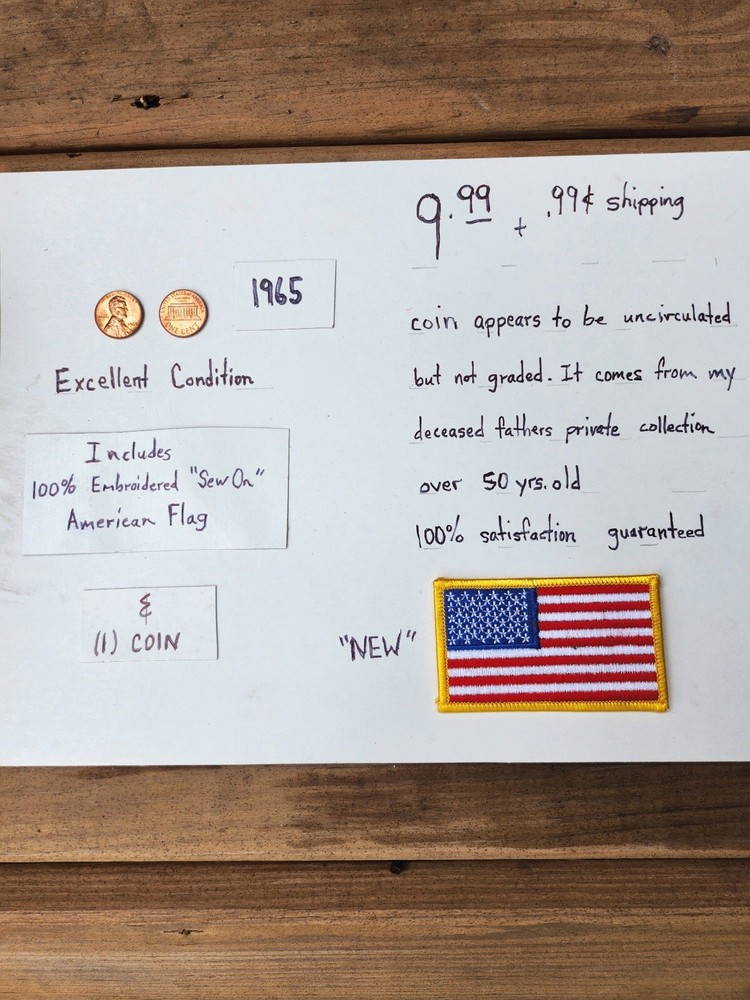 9.99 + .99¢ shipping
1965
Excellent Condition
Includes
100% Embroidered "Sew On"
American Flag
&
(1) COIN
coin appears to be uncirculated
but not graded. It comes from my
deceased fathers private collection
over 50 yrs. old
100% satisfaction guaranteed
"NEW"
ONE CENT